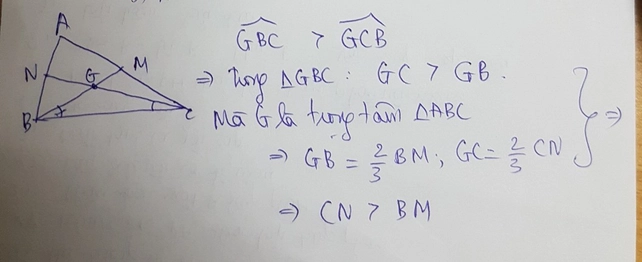 A
N
G
M
B
C
GBC > GCB
⇒ trong ΔGBC : GC > GB.
Mà G là trọng tâm ΔABC
⇒ GB = 2/3 BM ; GC = 2/3 CN
} ⇒
⇒ CN > BM